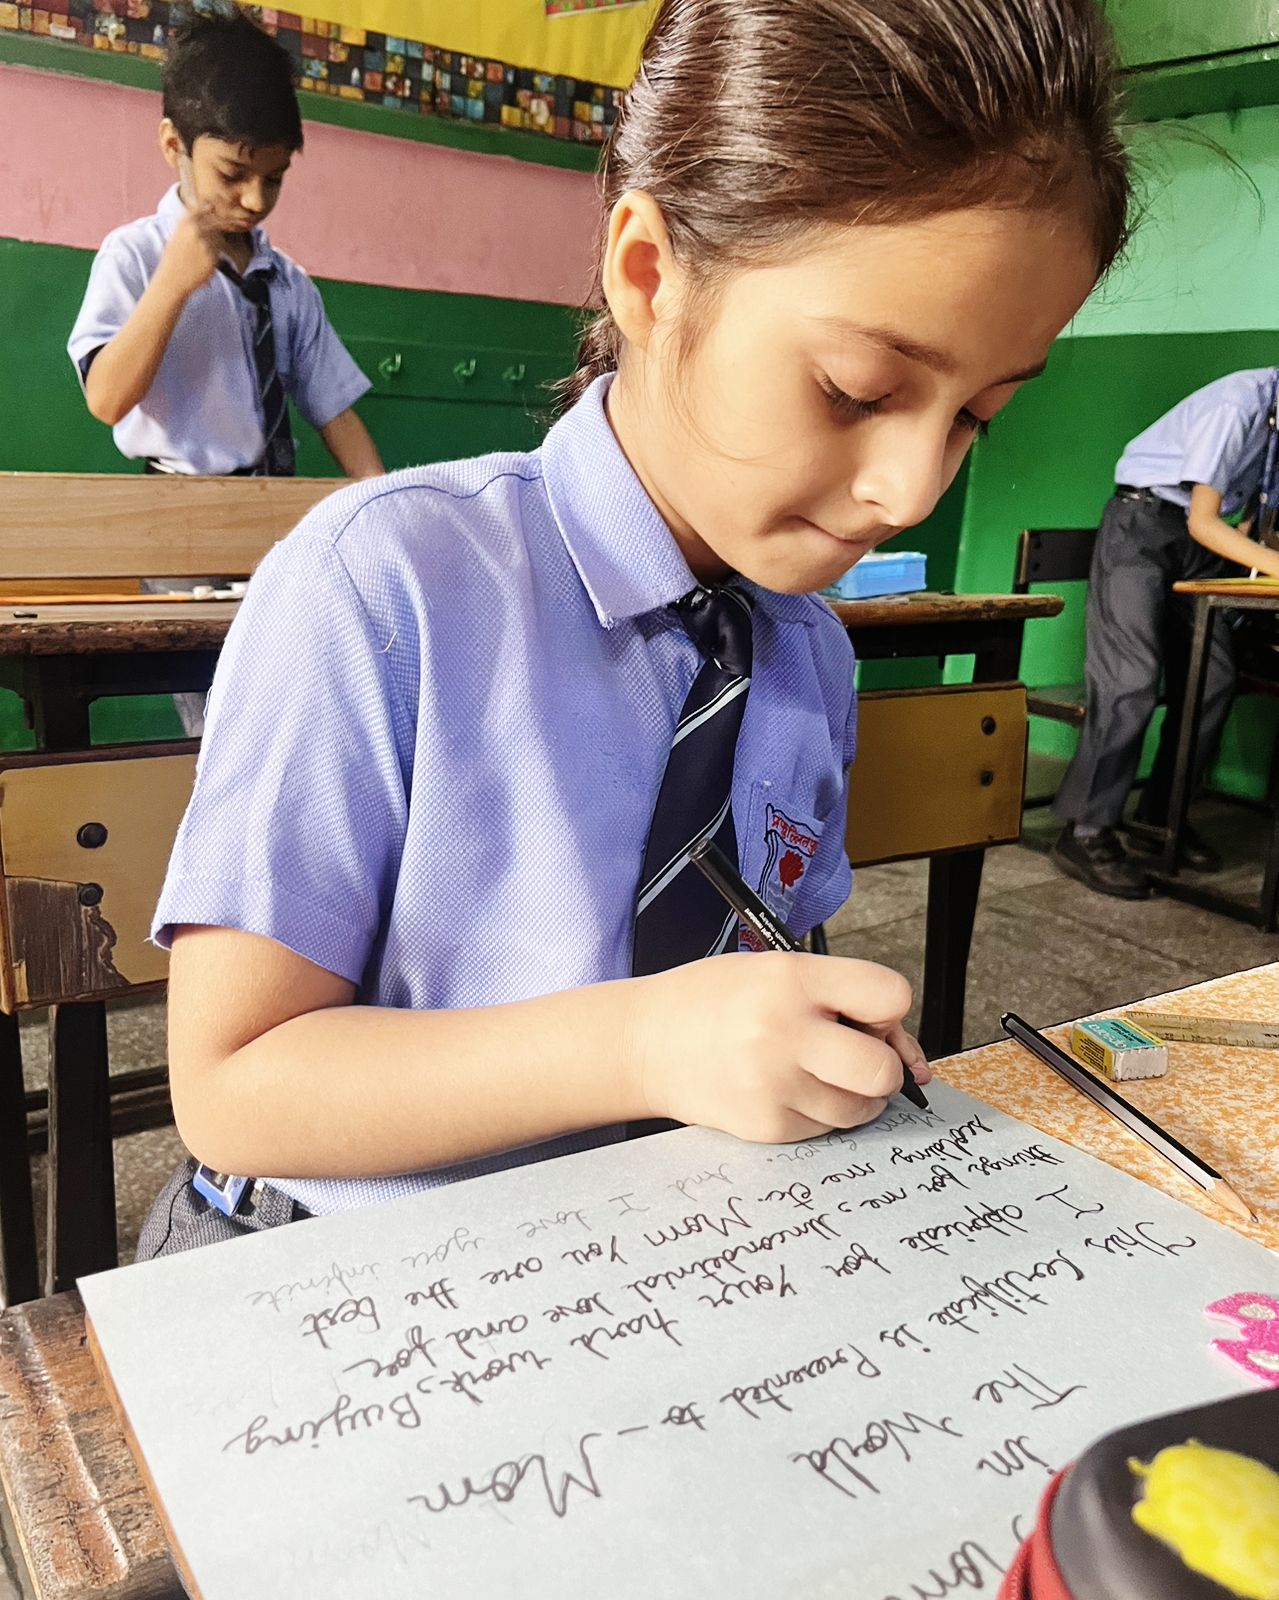 in
The World
This Certificate is Presented to - Mom
I appriciate for Your hard work, Buying
things for me, Uncondetnial love and for
scolding me etc. Mom You are the best
Mom Ever. And I love you infinite
apsara
smooth marking